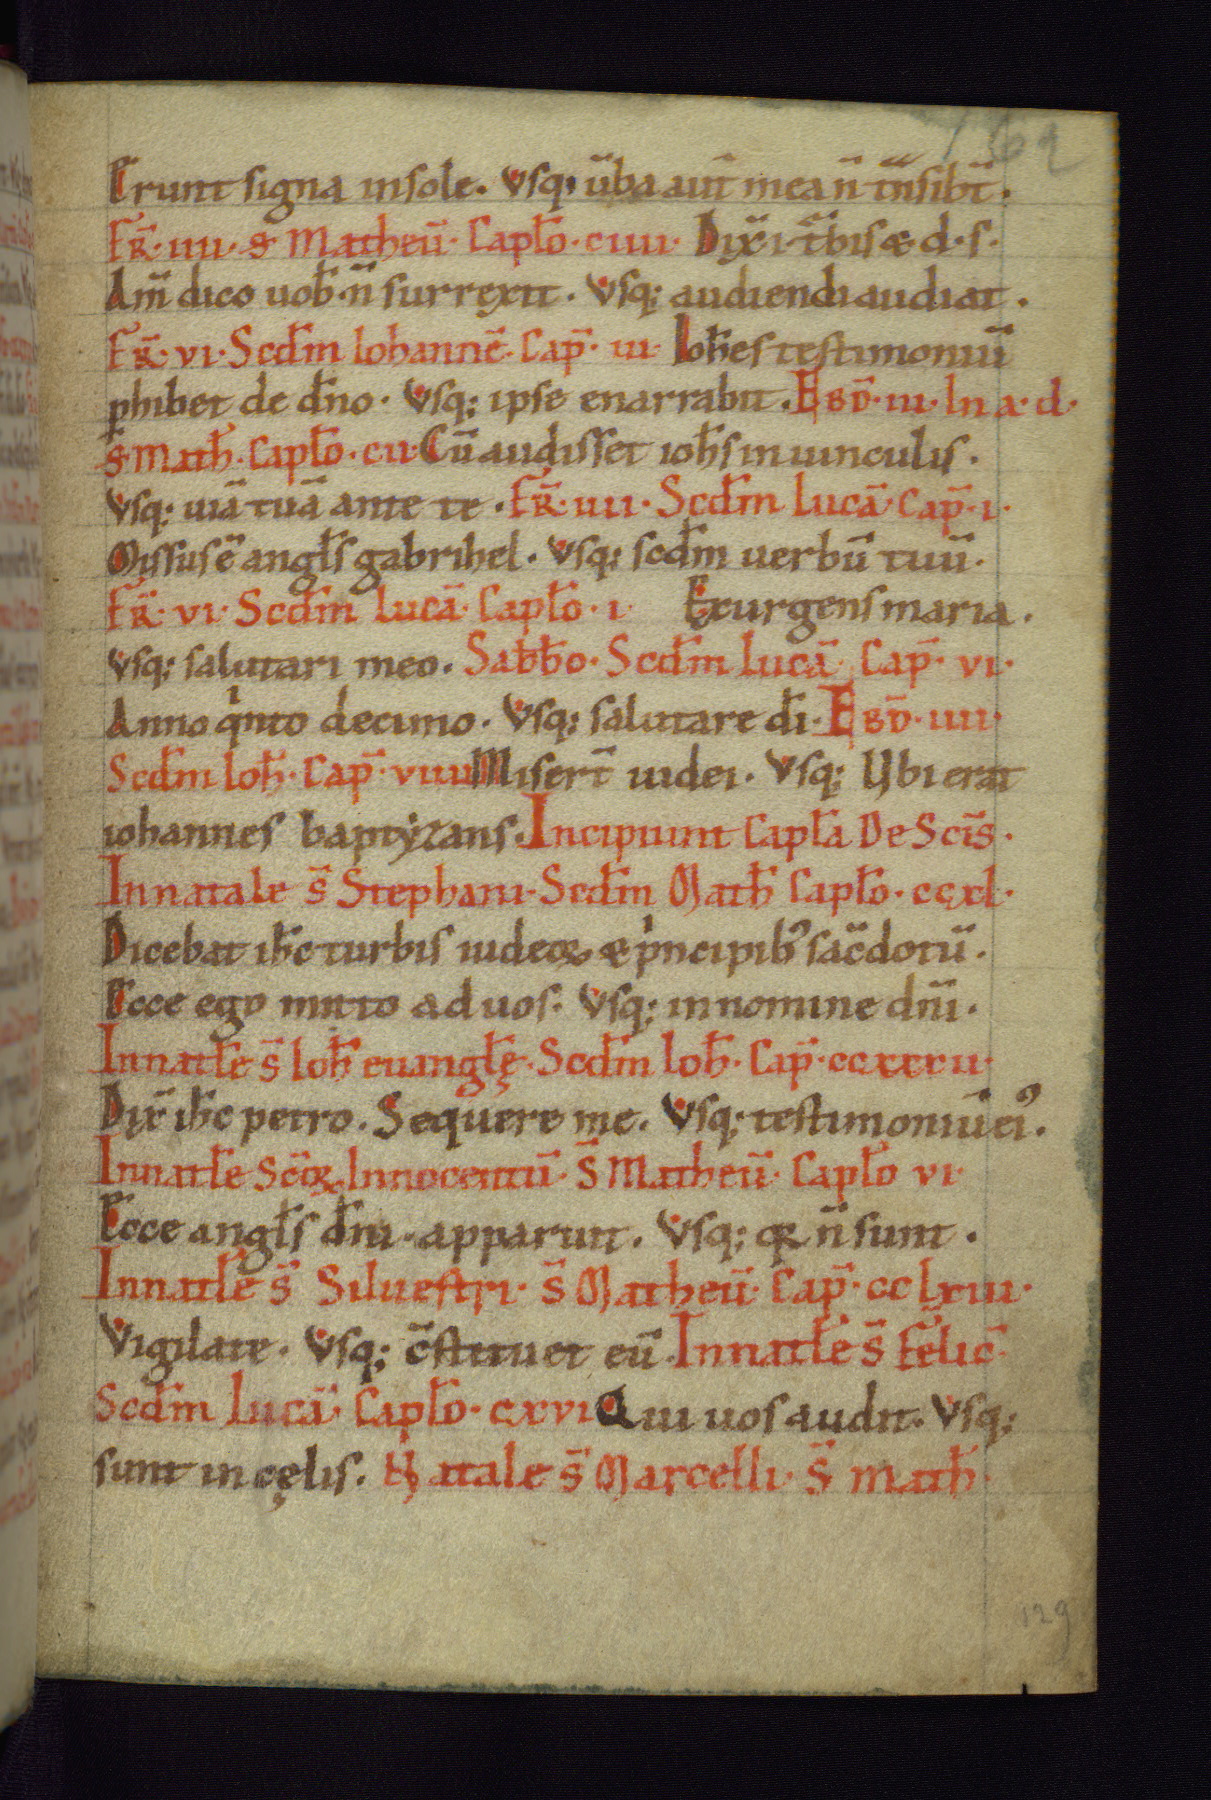 162
Erunt signa insole. Vsq; ũba aut̃ mea ñ tñsibt̃.
FR̃. iiii. s̄ Matheũ. Capl̃o. ciiii. Dix̃ i t̃bis & d. s.
Am̃ dico uob̃. ñ surrexit. Vsq; audiendi audiat.
FR̃. vi. Scd̃m Iohannẽ. Cap̃. iii. Ioh̃es testimoniũ
ꝑhibet de dño. Vsq; ipse enarrabit. EBD̃. iii. In a. d.
s̄. Math̃. Capl̃o. cii. Cũ audisset ioh̃s in uinculis.
Vsq; uiã tuã ante te. FR̃. iiii. Scd̃m Lucã. Cap̃. i.
Missus ẽ angl̃s gabrihel. Vsq; scd̃m uerbũ tuũ.
FR̃. vi. Scd̃m Lucã. Capl̃o. i Exurgens maria.
Vsq; salutari meo. Sab̃bo. Scd̃m Lucã Cap̃. vi.
Anno qⁱnto decimo. Vsq; salutare d̃i. EBD̃. iiii.
Scd̃m Ioh̃. Cap̃. viiii Misert̃ iudei. Vsq; Ubi erat
iohannes baptyzans. Incipiunt Capl̃a De Scĩs.
In natale s̃ Stephani. Scd̃m Math̃ Capl̃o. ccxl.
Dicebat ih̃c turbis iudeoꝝ & pⁱncipib; sac̃dotũ.
Ecce ego mitto ad uos. Vsq; in nomine dñi.
In natl̃e s̃ Ioh̃ euangl̃ę. Scd̃m Ioh̃. Cap̃. ccxxxii.
Dix̃ ih̃c petro. Sequere me. Vsq; testimoniũ eiꝰ.
In natl̃e Sc̃oꝝ Innocentũ. S̃ Matheũ. Capl̃o vi.
Ecce angl̃s d̃ni. apparuit. Vsq; qꝛ ñ sunt.
In natl̃e s̃ Siluestri. s̃ Matheũ. Cap̃. cclxiii.
Vigilate. Vsq; c̃stituet eũ. In natl̃e s̃ Felic̃
Scd̃m Lucã. Capl̃o. cxvi Qui uos audit. Vsq;
sunt in cęlis. Natale s̃ Marcelli. S̃ Math̃.
129